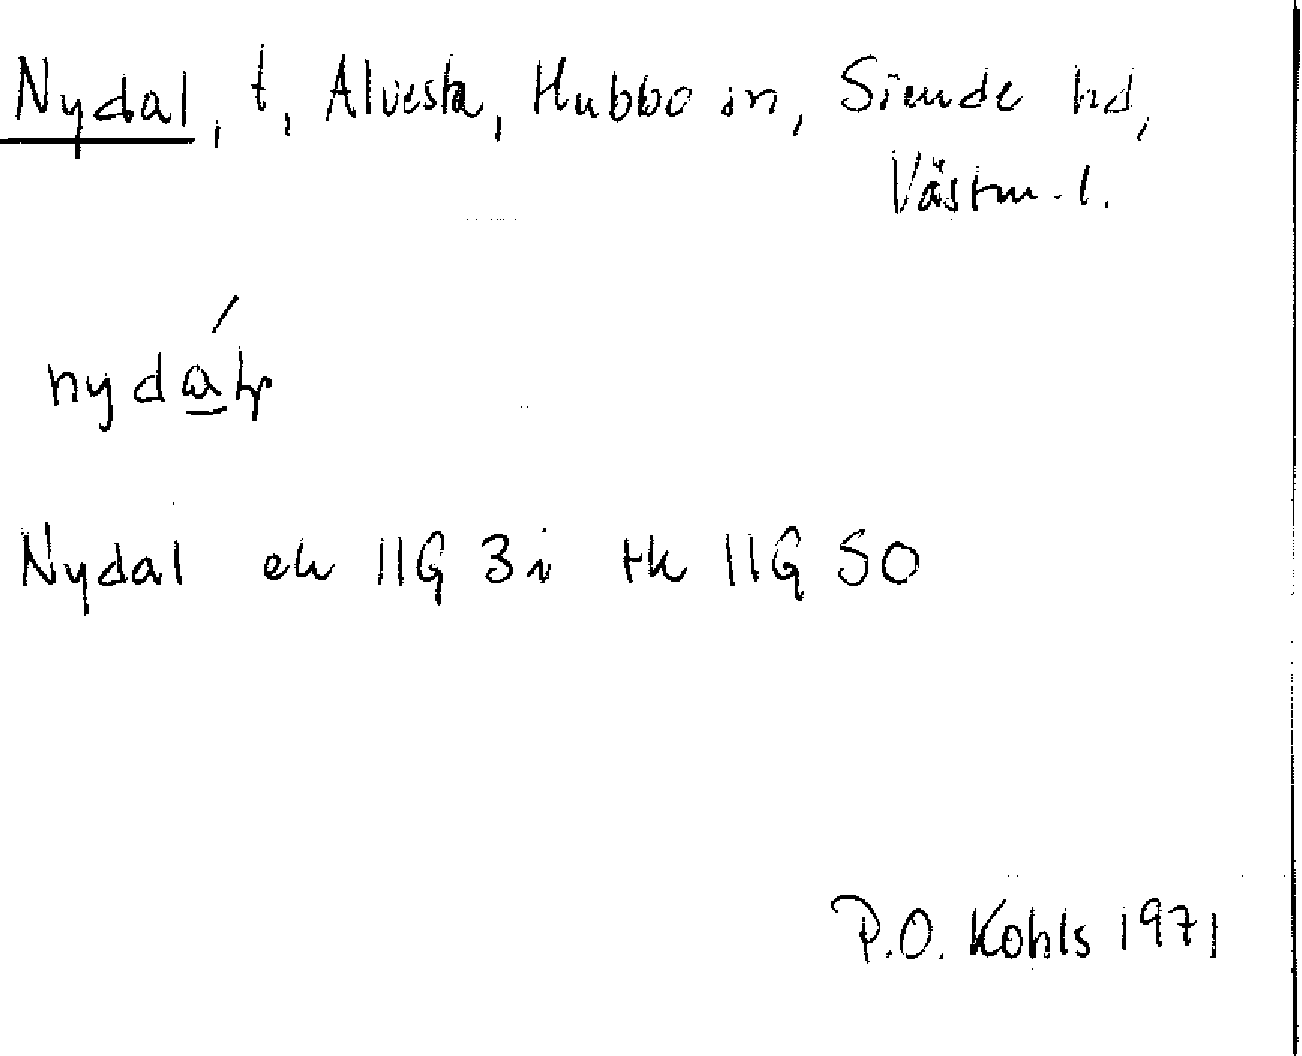 Nydal, t, Alvesta, Hubbo sn, Siende hd,
Västm. l.
nydáḷ
Nydal ek 11G 3i tk 11G SO
P.O. Kohls 1971